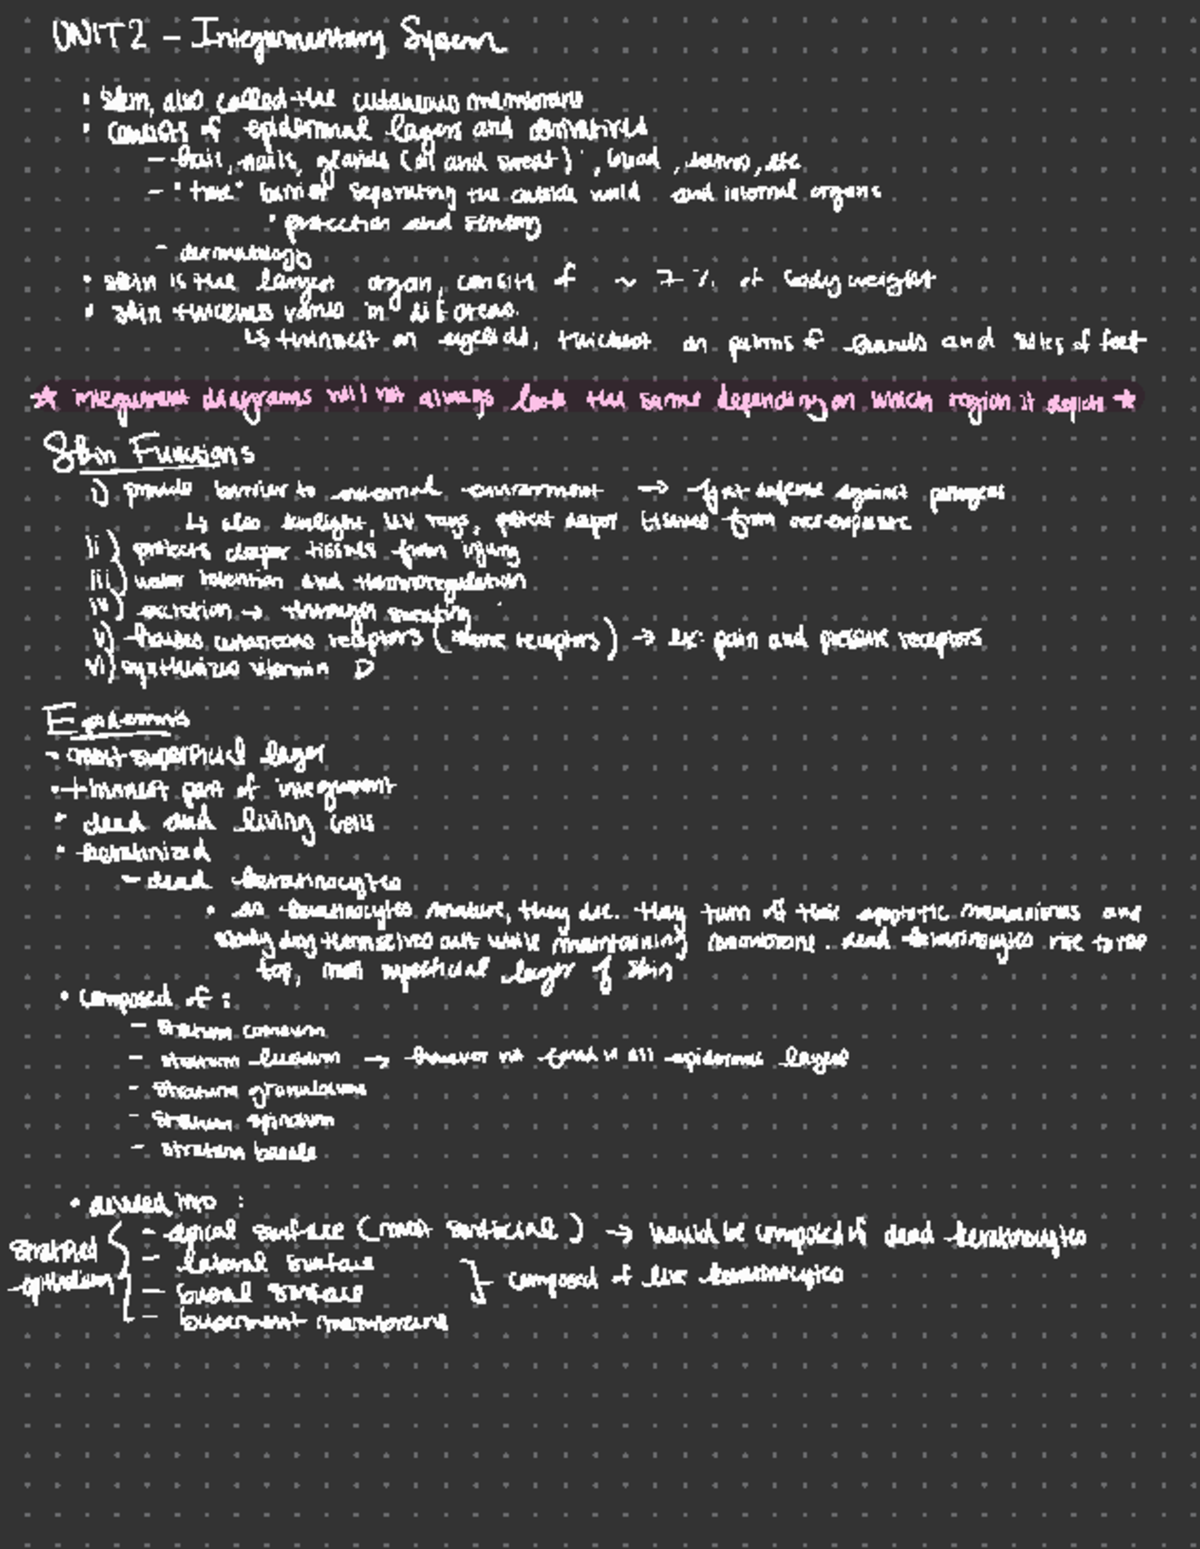 UNIT 2 - Integumentary System
• Skin, also called the cutaneous membrane
• consists of epidermal layers and derivatives
- hair, nails, glands (oil and sweat), blood, nerves, etc
- "true" barrier separating the outside world and internal organs
• protection and sensory
- dermatology
• skin is the largest organ, consists of ~ 7% of body weight
• skin thickness varies in diff areas.
↳ thinnest on eyelids, thickest on palms of hands and soles of feet
★ integument diagrams will not always look the same depending on which region it depicts ★
Skin Functions
i) provide barrier to external environment → first defense against pathogens
↳ also sunlight, UV rays, protect deeper tissues from over-exposure
ii) protects deeper tissues from injury
iii) water retention and thermoregulation
iv) excretion → through sweating
v) houses cutaneous receptors ( receptors) → ex: pain and pressure receptors
vi) synthesizes vitamin D
Epidermis
- most superficial layer
• thinnest part of integument
• dead and living cells
• keratinized
- dead keratinocytes
• as keratinocytes mature, they die. they turn off their apoptotic mechanisms and
slowly dry themselves out while maintaining membrane. dead keratinocytes rise to
top, most superficial layer of skin
• composed of :
- stratum corneum
- stratum lucidum → however not found in all epidermal layers
- stratum granulosum
- stratum spinosum
- stratum basale
• divided into :
- apical surface (most superficial) → would be composed of dead keratinocytes
stratified epithelium
- lateral surface
- basal surface
composed of live keratinocytes
- basement membrane